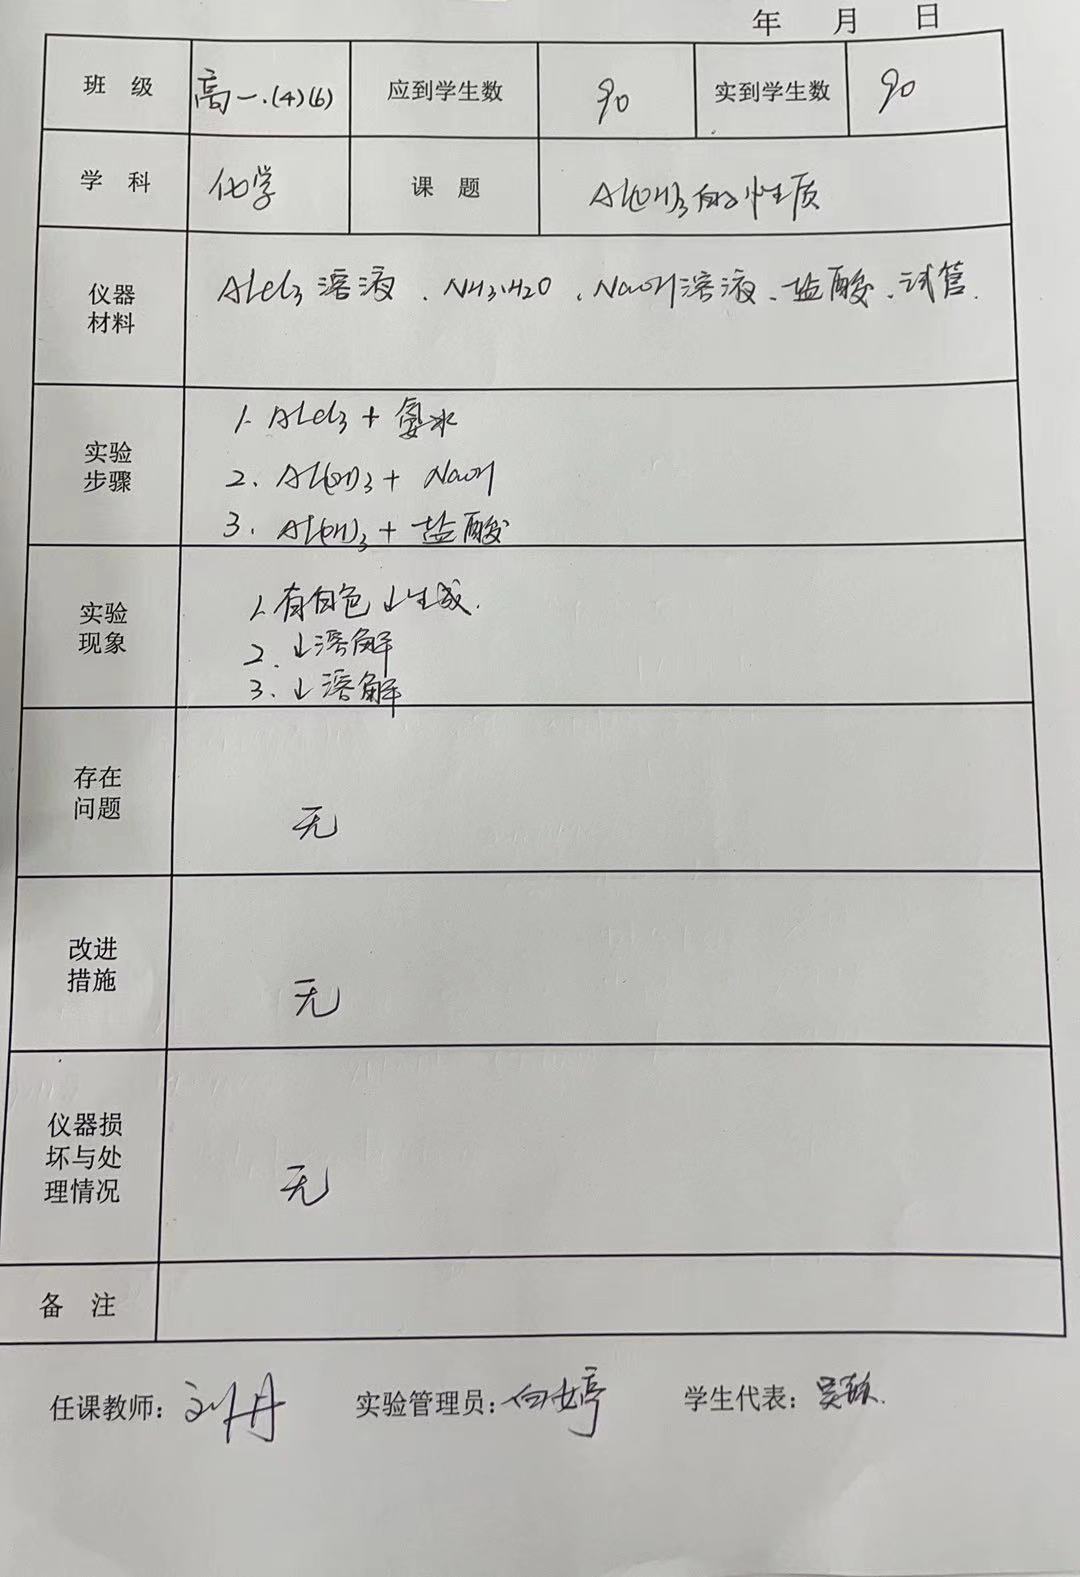 年 月 日
班 级 高一.(4)(6) 应到学生数 90 实到学生数 90
学 科 化学 课 题 Al(OH)3的性质
仪器
材料
AlCl3溶液、NH3·H2O、NaOH溶液、盐酸、试管.
实验
步骤
1. AlCl3 + 氨水
2. Al(OH)3 + NaOH
3. Al(OH)3 + 盐酸
实验
现象
1. 有白色↓生成.
2. ↓溶解
3. ↓溶解
存在
问题
无
改进
措施
无
仪器损
坏与处
理情况
无
备 注
任课教师: 刘丹 实验管理员: 白婷 学生代表: 吴